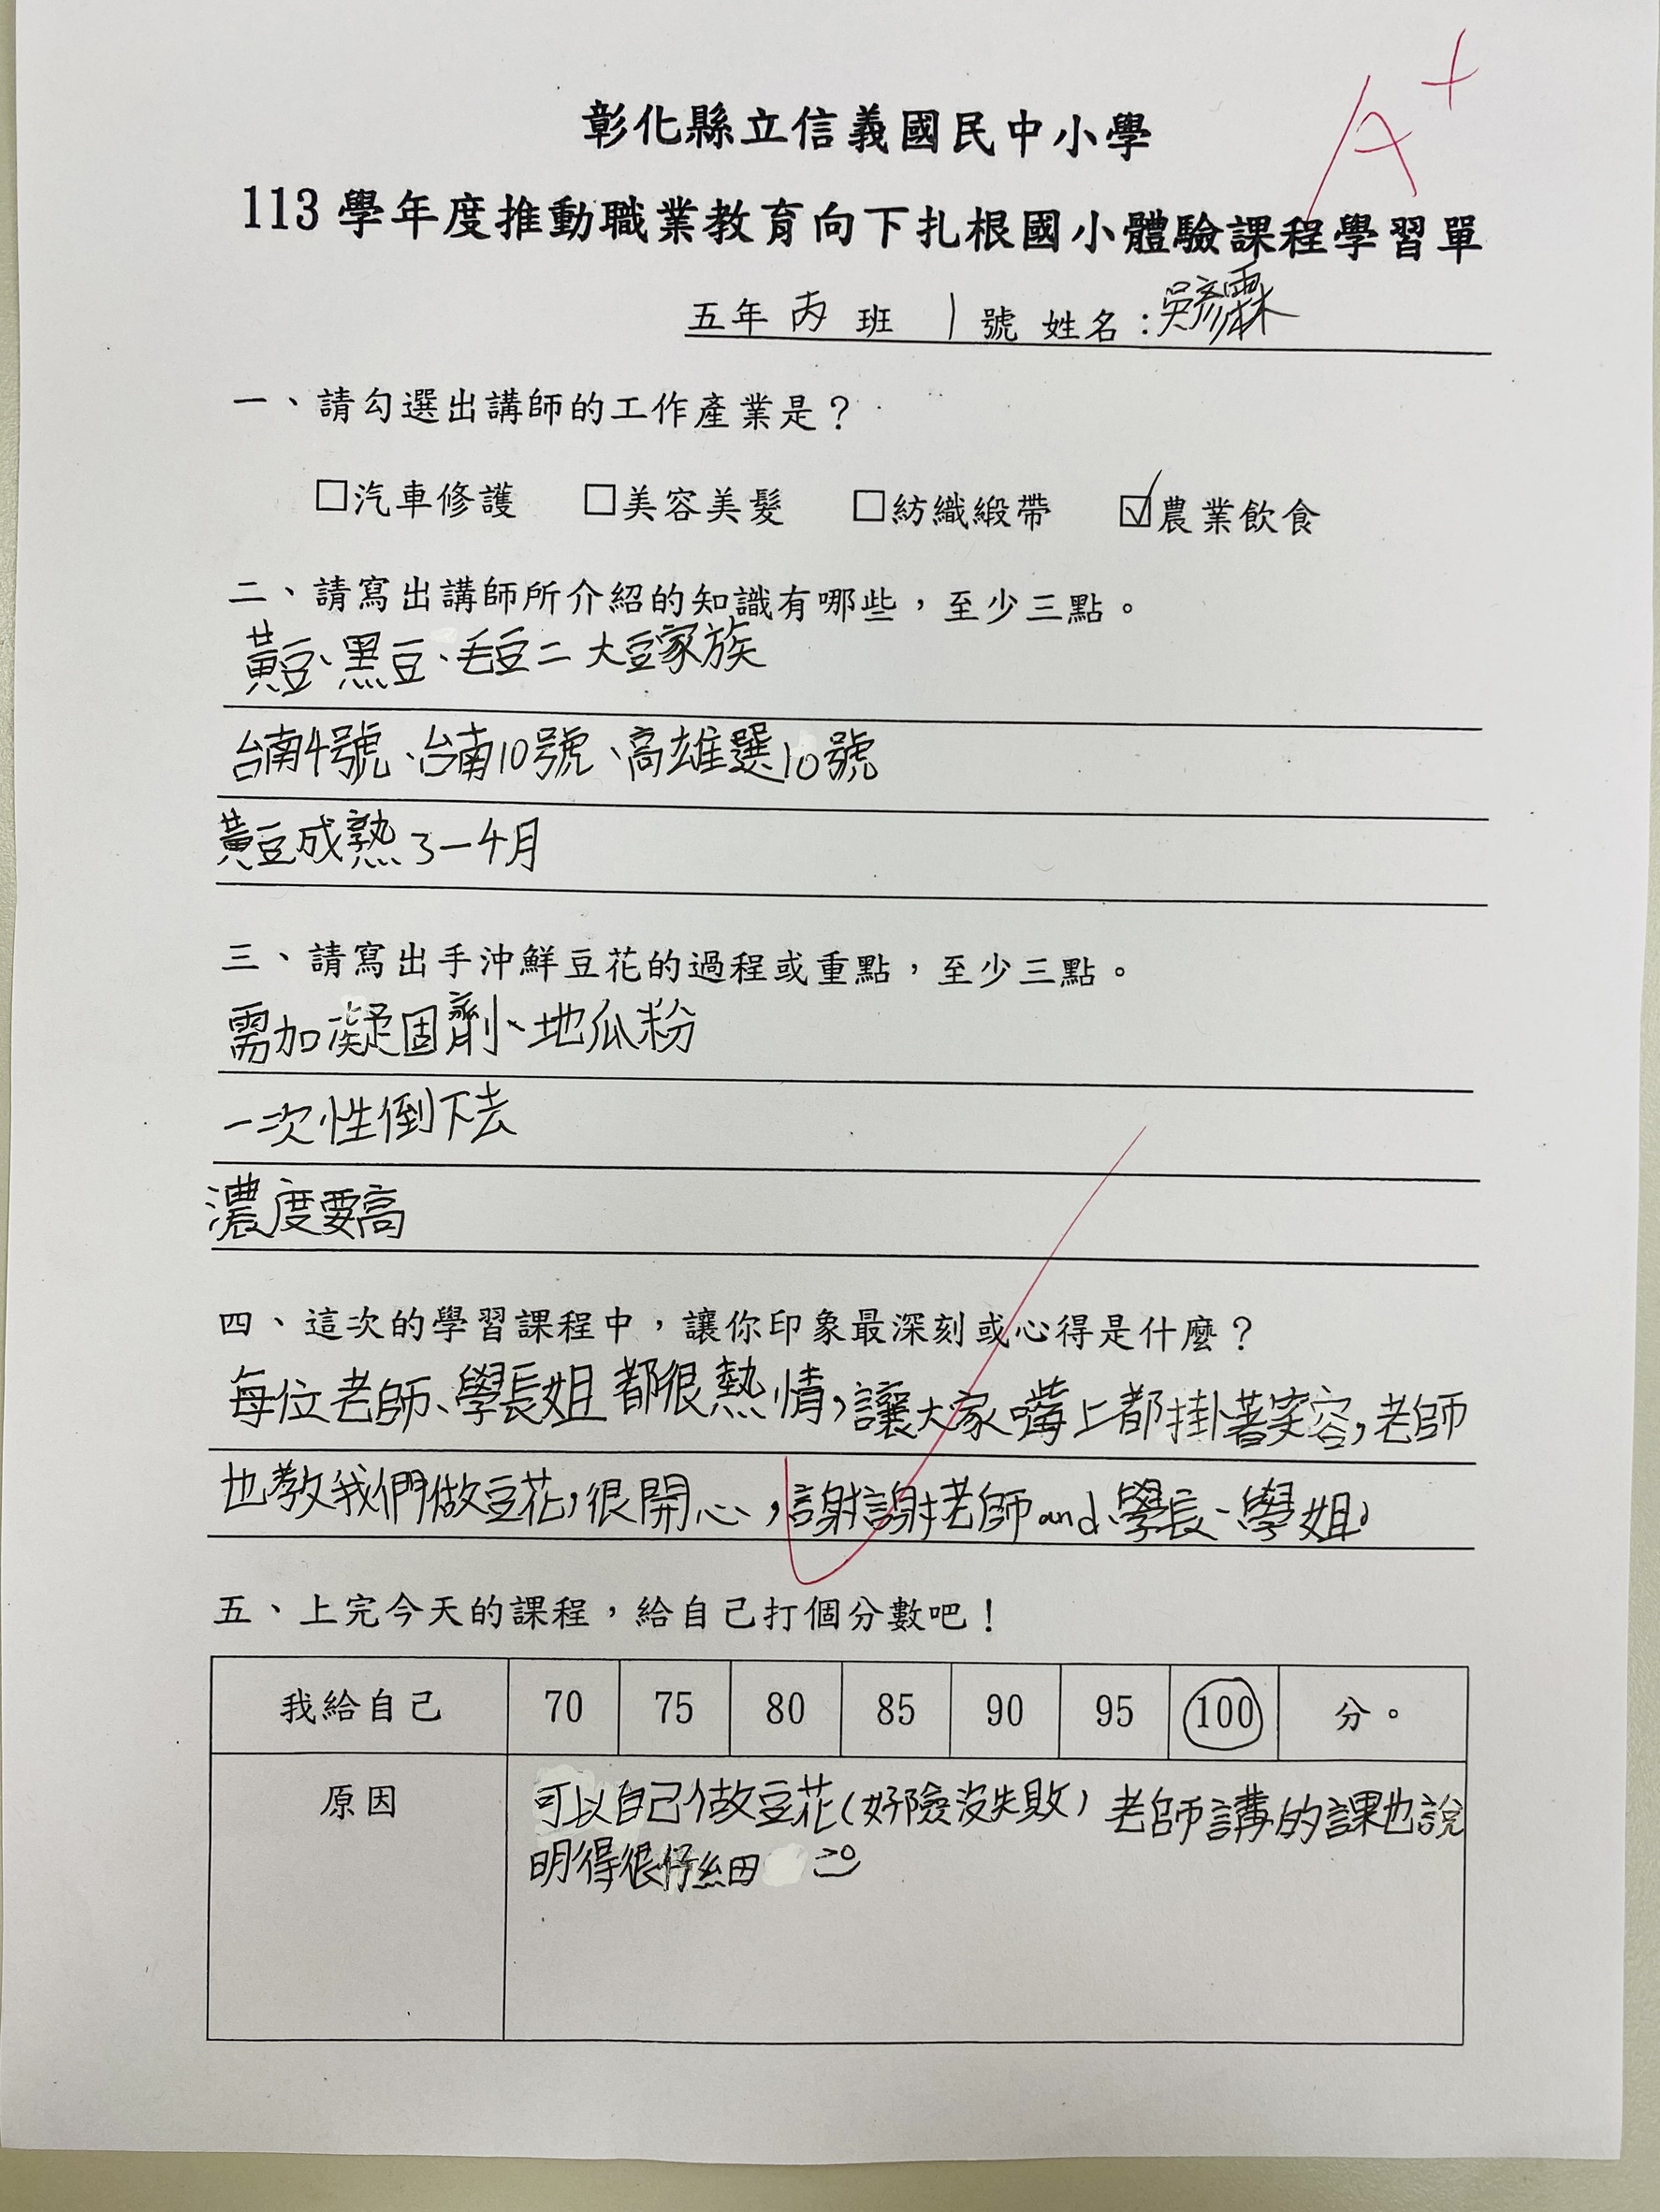 A+
彰化縣立信義國民中小學
113 學年度推動職業教育向下扎根國小體驗課程學習單
五年 丙 班 1 號 姓名：吳彥霖
一、請勾選出講師的工作產業是？
□汽車修護 □美容美髮 □紡織緞帶 ☑農業飲食
二、請寫出講師所介紹的知識有哪些，至少三點。
黃豆、黑豆、毛豆二大豆家族
台南4號、台南10號、高雄選10號
黃豆成熟3-4月
三、請寫出手沖鮮豆花的過程或重點，至少三點。
需加凝固劑、地瓜粉
一次性倒下去
濃度要高
四、這次的學習課程中，讓你印象最深刻或心得是什麼？
每位老師、學長姐都很熱情，讓大家嘴上都掛著笑容，老師
也教我們做豆花，很開心，謝謝老師and學長、學姐。
五、上完今天的課程，給自己打個分數吧！
我給自己 70 75 80 85 90 95 100 分。
原因 可以自己做豆花(好險沒失敗) 老師講的課也說
明得很仔細